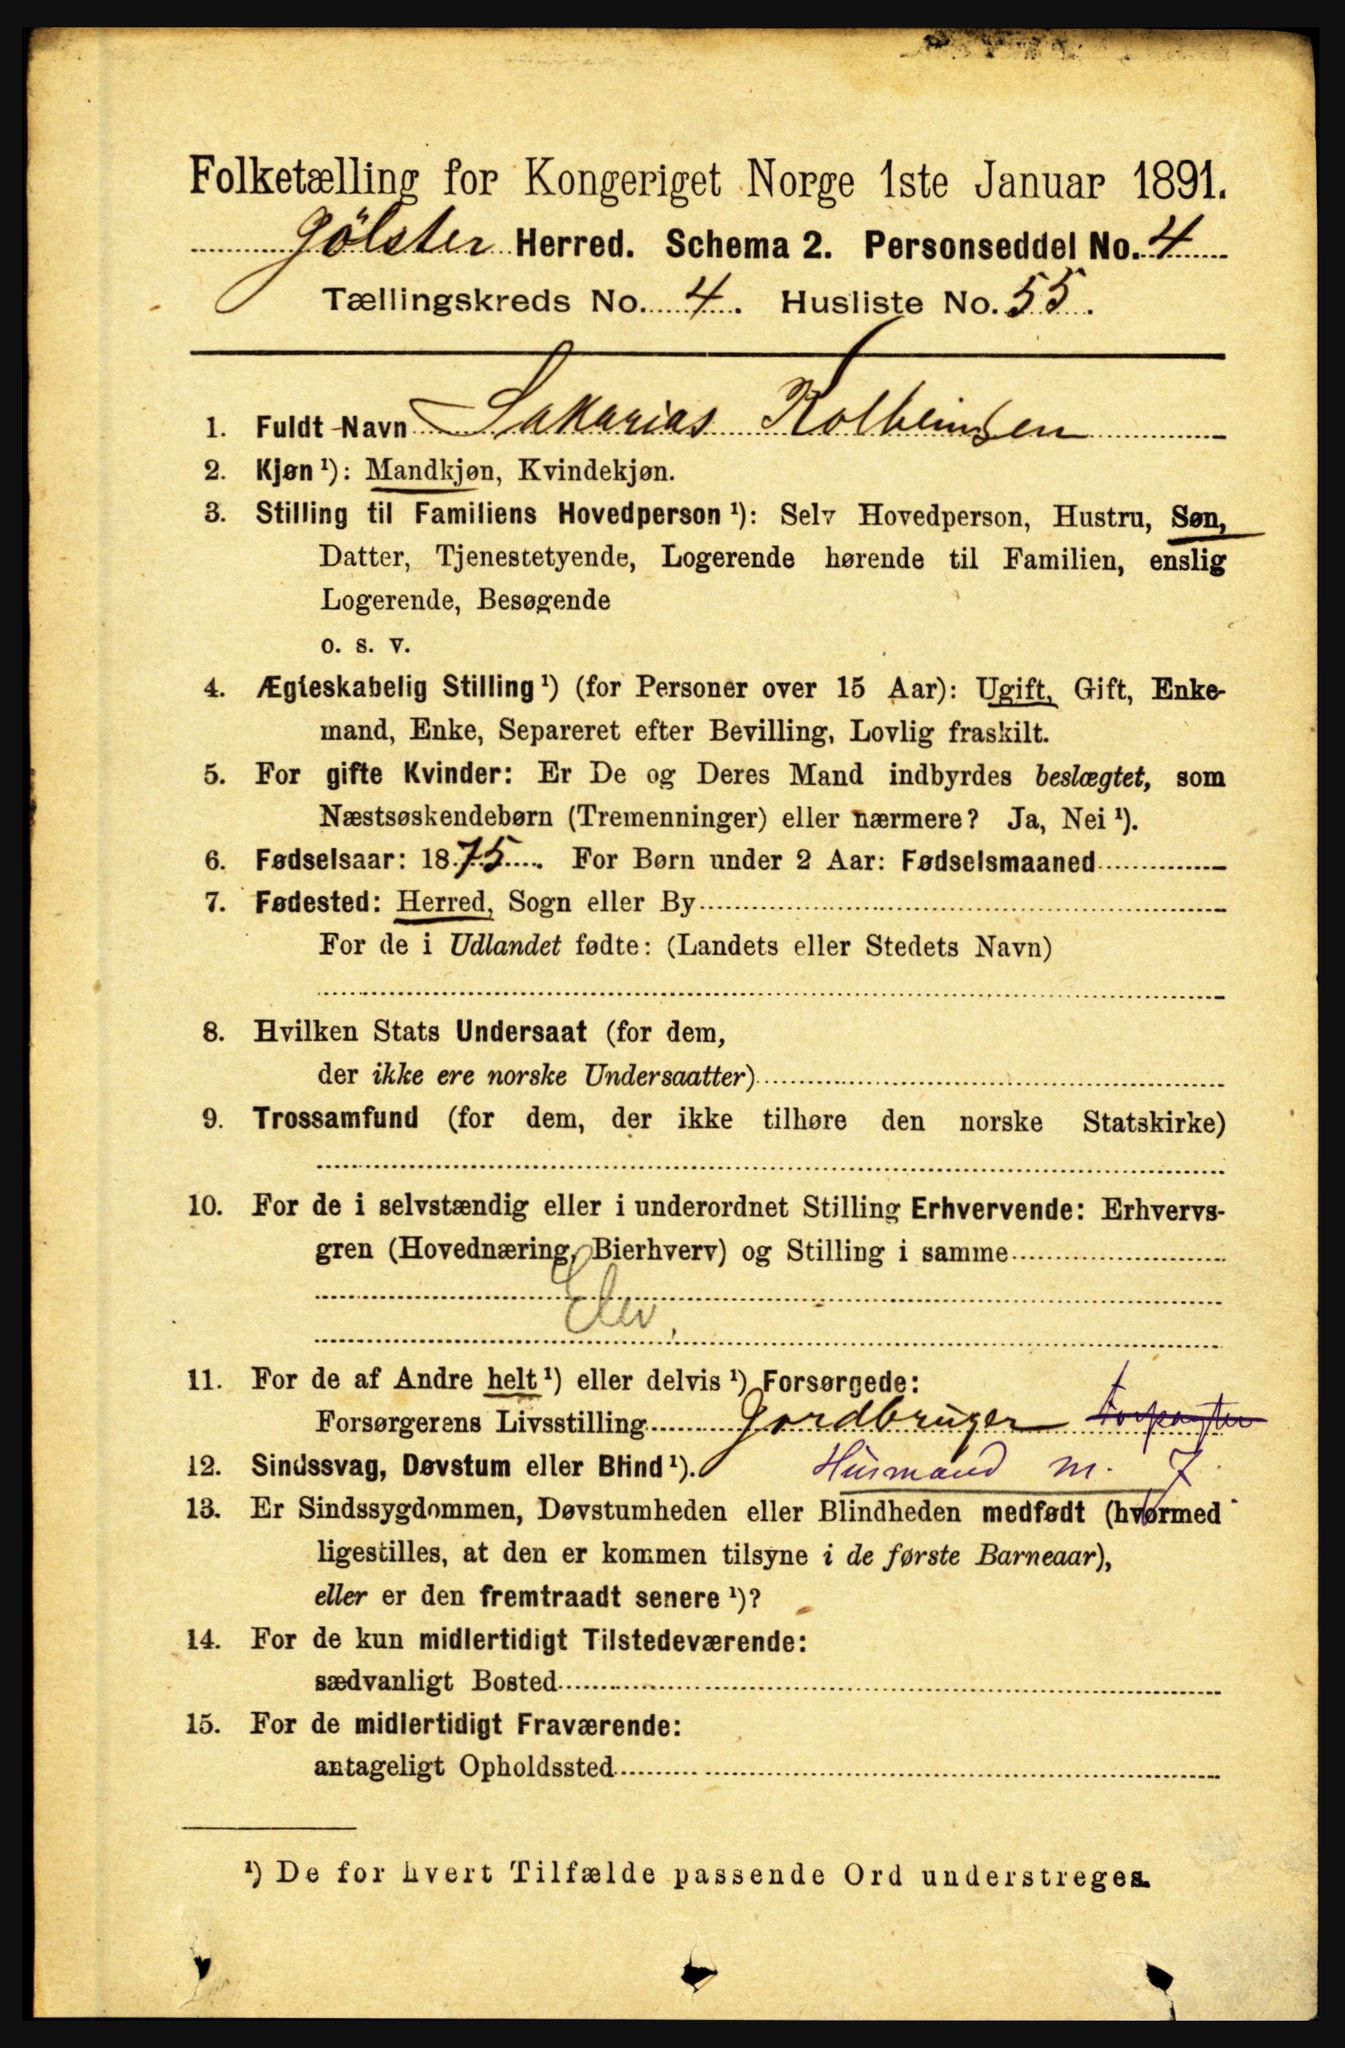 Folketælling for Kongeriget Norge 1ste Januar 1891.
Jölster Herred. Schema 2. Personseddel No. 4
Tællingskreds No. 4. Husliste No. 55.
1. Fuldt Navn Sakarias Kolbeinsen
2. Kjøn ¹): Mandkjøn, Kvindekjøn.
3. Stilling til Familiens Hovedperson ¹): Selv Hovedperson, Hustru, Søn,
Datter, Tjenestetyende, Logerende hørende til Familien, enslig
Logerende, Besøgende
o. s. v.
4. Ægteskabelig Stilling ¹) (for Personer over 15 Aar): Ugift, Gift, Enke-
mand, Enke, Separeret efter Bevilling, Lovlig fraskilt.
5. For gifte Kvinder: Er De og Deres Mand indbyrdes beslægtet, som
Næstsøskendebørn (Tremenninger) eller nærmere? Ja, Nei ¹).
6. Fødselsaar: 1875. For Børn under 2 Aar: Fødselsmaaned
7. Fødested: Herred, Sogn eller By
For de i Udlandet fødte: (Landets eller Stedets Navn)
8. Hvilken Stats Undersaat (for dem,
der ikke ere norske Undersaatter)
9. Trossamfund (for dem, der ikke tilhøre den norske Statskirke)
10. For de i selvstændig eller i underordnet Stilling Erhvervende: Erhvervs-
gren (Hovednæring, Bierhverv) og Stilling i samme
Elev.
11. For de af Andre helt ¹) eller delvis ¹) Forsørgede:
Forsørgerens Livsstilling Jordbruger Forpagter
12. Sindssvag, Døvstum eller Blind ¹). Husmand m. J
13. Er Sindssygdommen, Døvstumheden eller Blindheden medfødt (hvormed
ligestilles, at den er kommen tilsyne i de første Barneaar),
eller er den fremtraadt senere ¹)?
14. For de kun midlertidigt Tilstedeværende:
sædvanligt Bosted
15. For de midlertidigt Fraværende:
antageligt Opholdssted
¹) De for hvert Tilfælde passende Ord understreges.